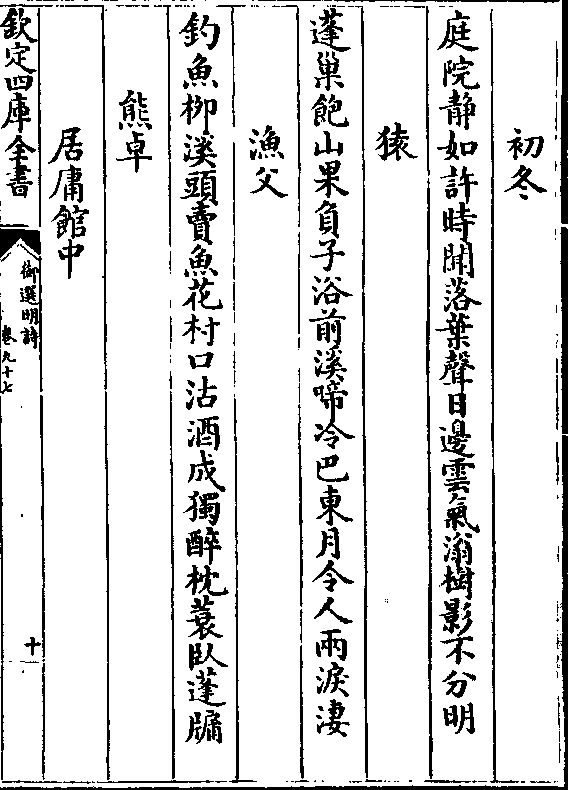 初冬
庭院静如許時聞落葉聲日邊雲氣滃樹影不分明
猿
蓬巢飽山果負子浴前溪啼冷巴東月令人兩淚淒
漁父
釣魚栁溪頭賣魚花村口沽酒成獨醉枕蓑臥蓬牗
熊卓
居庸館中
欽定四庫全書
御選明詩
卷九十七
十